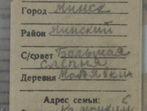 Город Минск
Район Минский
С/совет Большая
Слепня
Деревня
Адрес семьи: 6